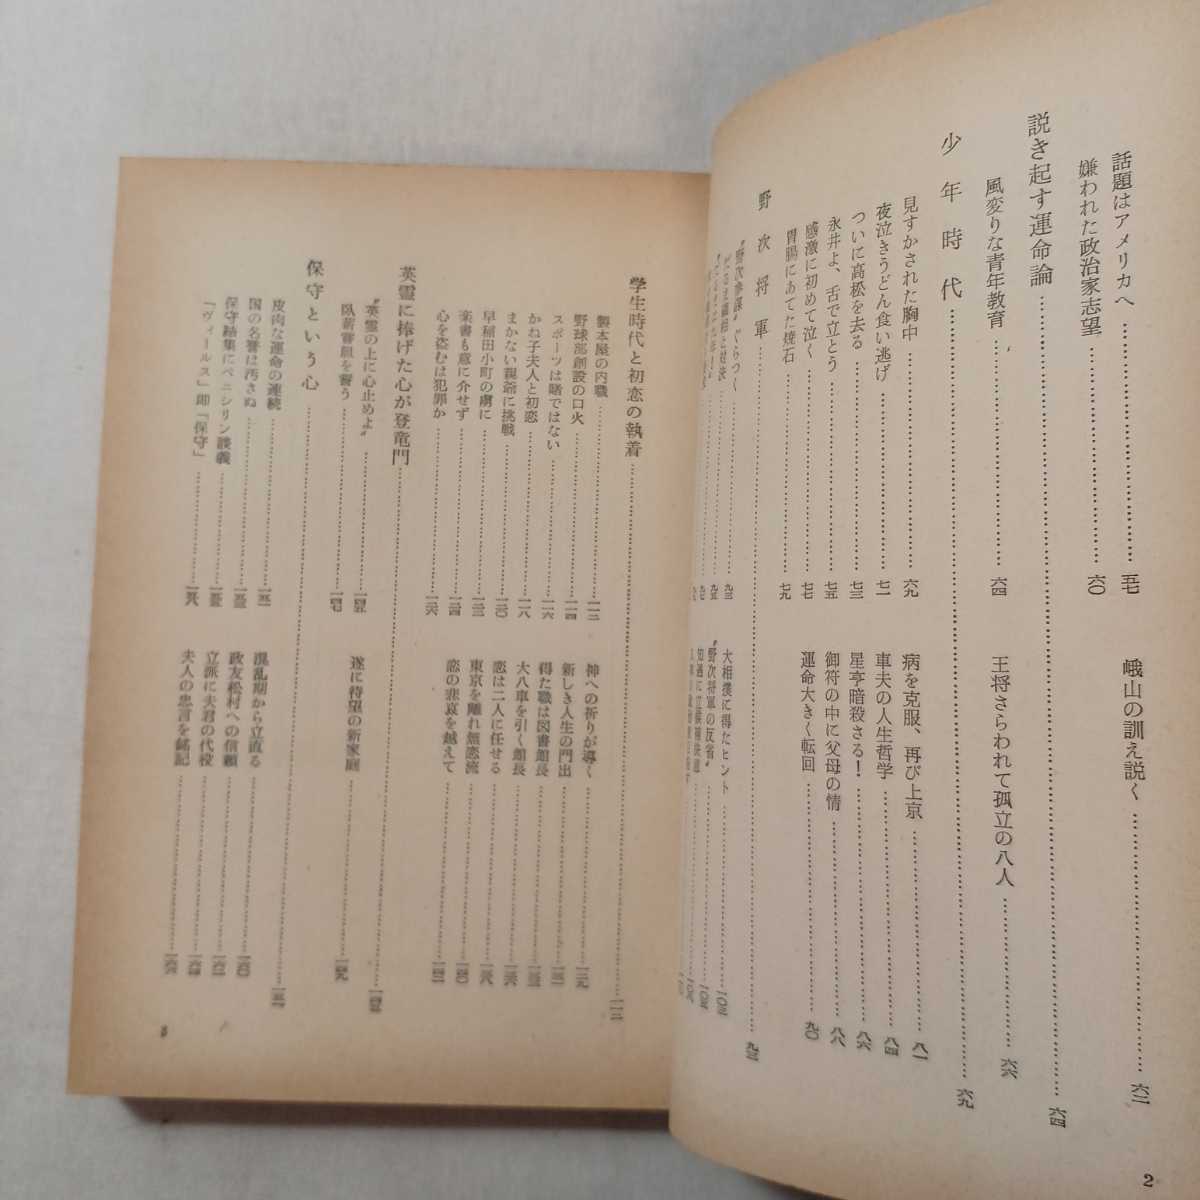 話題はアメリカへ……五七
嫌われた政治家志望……六〇
峨山の訓え説く……六二
説き起す運命論……六四
風変りな青年教育……六四
王将さらわれて孤立の八人……六六
少年時代……六九
見すかされた胸中……六九
夜泣きうどん食い逃げ……七一
ついに高松を去る……七三
永井よ、舌で立とう……七五
感激に初めて泣く……七七
胃腸にあてた焼石……七九
病を克服、再び上京……八一
車夫の人生哲学……八四
星亨暗殺さる!……八六
御符の中に父母の情……八八
運命大きく転回……九〇
野次将軍……九三
〝野次参謀〟ぐらつく……九三
大相撲に得たヒント……
〝野次将軍の反省〟……
2
学生時代と初恋の執着……一一二
製本屋の内職……一一二
野球部創設の口火……一一四
スポーツは賭ではない……一一六
かね子夫人と初恋……一一八
まかない親爺に挑戦……一二〇
早稲田小町の虜に……一二二
楽書も意に介せず……一二四
心を盗むは犯罪か……一二六
神への祈りが導く……一二九
新しき人生の門出……一三一
得た職は図書館長……一三三
大八車を引く館長……一三六
恋は二人に任せる……一三八
東京を離れ無恋流……一四〇
恋の悲哀を越えて……一四二
英霊に捧げた心が登竜門……一四五
〝英霊の上に心止めよ〟……一四五
臥薪嘗胆を誓う……一四七
遂に待望の新家庭……一四九
保守という心……一五一
皮肉な運命の連続……一五一
国の名誉は汚さぬ……一五三
保守結集にペニシリン談義……一五五
「ヴィールス」即「保守」……一五八
混乱期から立直る……一六〇
政友松村への信頼……一六二
立派に夫君の代役……一六四
夫人の忠言を銘記……一六六
3